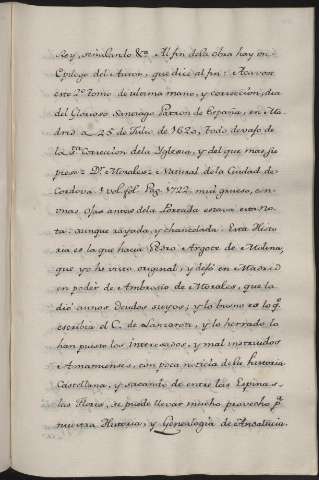 Rey, señalando &ª. Al fin de la obra hay un
Epilogo del Autor, que dice al fin: Acavose
este 2º tomo de ultima mano, y correccion, dia
del Glorioso Santiago Patron de España, en Ma-
drid a 25 de Julio de 1620, todo devajo de
la Sta Correccion dela Yglesia, y del que mas su-
piere: Dr. Morales: Natural de la Ciudad de
Cordova: 1 vol. fol. Pag. 1722. mui grueso, con
unas Ojas antes dela Portada estava esta no-
ta: aunque rayada, y chancelada. Esta Histo-
ria es la que hacia Pedro Argote de Molina,
que yo he visto original; y dejó en Madrid
en poder de Ambrosio de Morales, que la
dio aunos deudos suyos; y lo bueno es lo q.
escribia el C. de Lanzarote, y lo herrado lo
han puesto los interesados, y mal instruidos
Amanuenses, con poca noticia dela historia
Castellana, y sacando de entre las Espinas
las Flores, se puede llevar mucho provecho pª
nuestra Historia, y Genealogia de Andalucia.